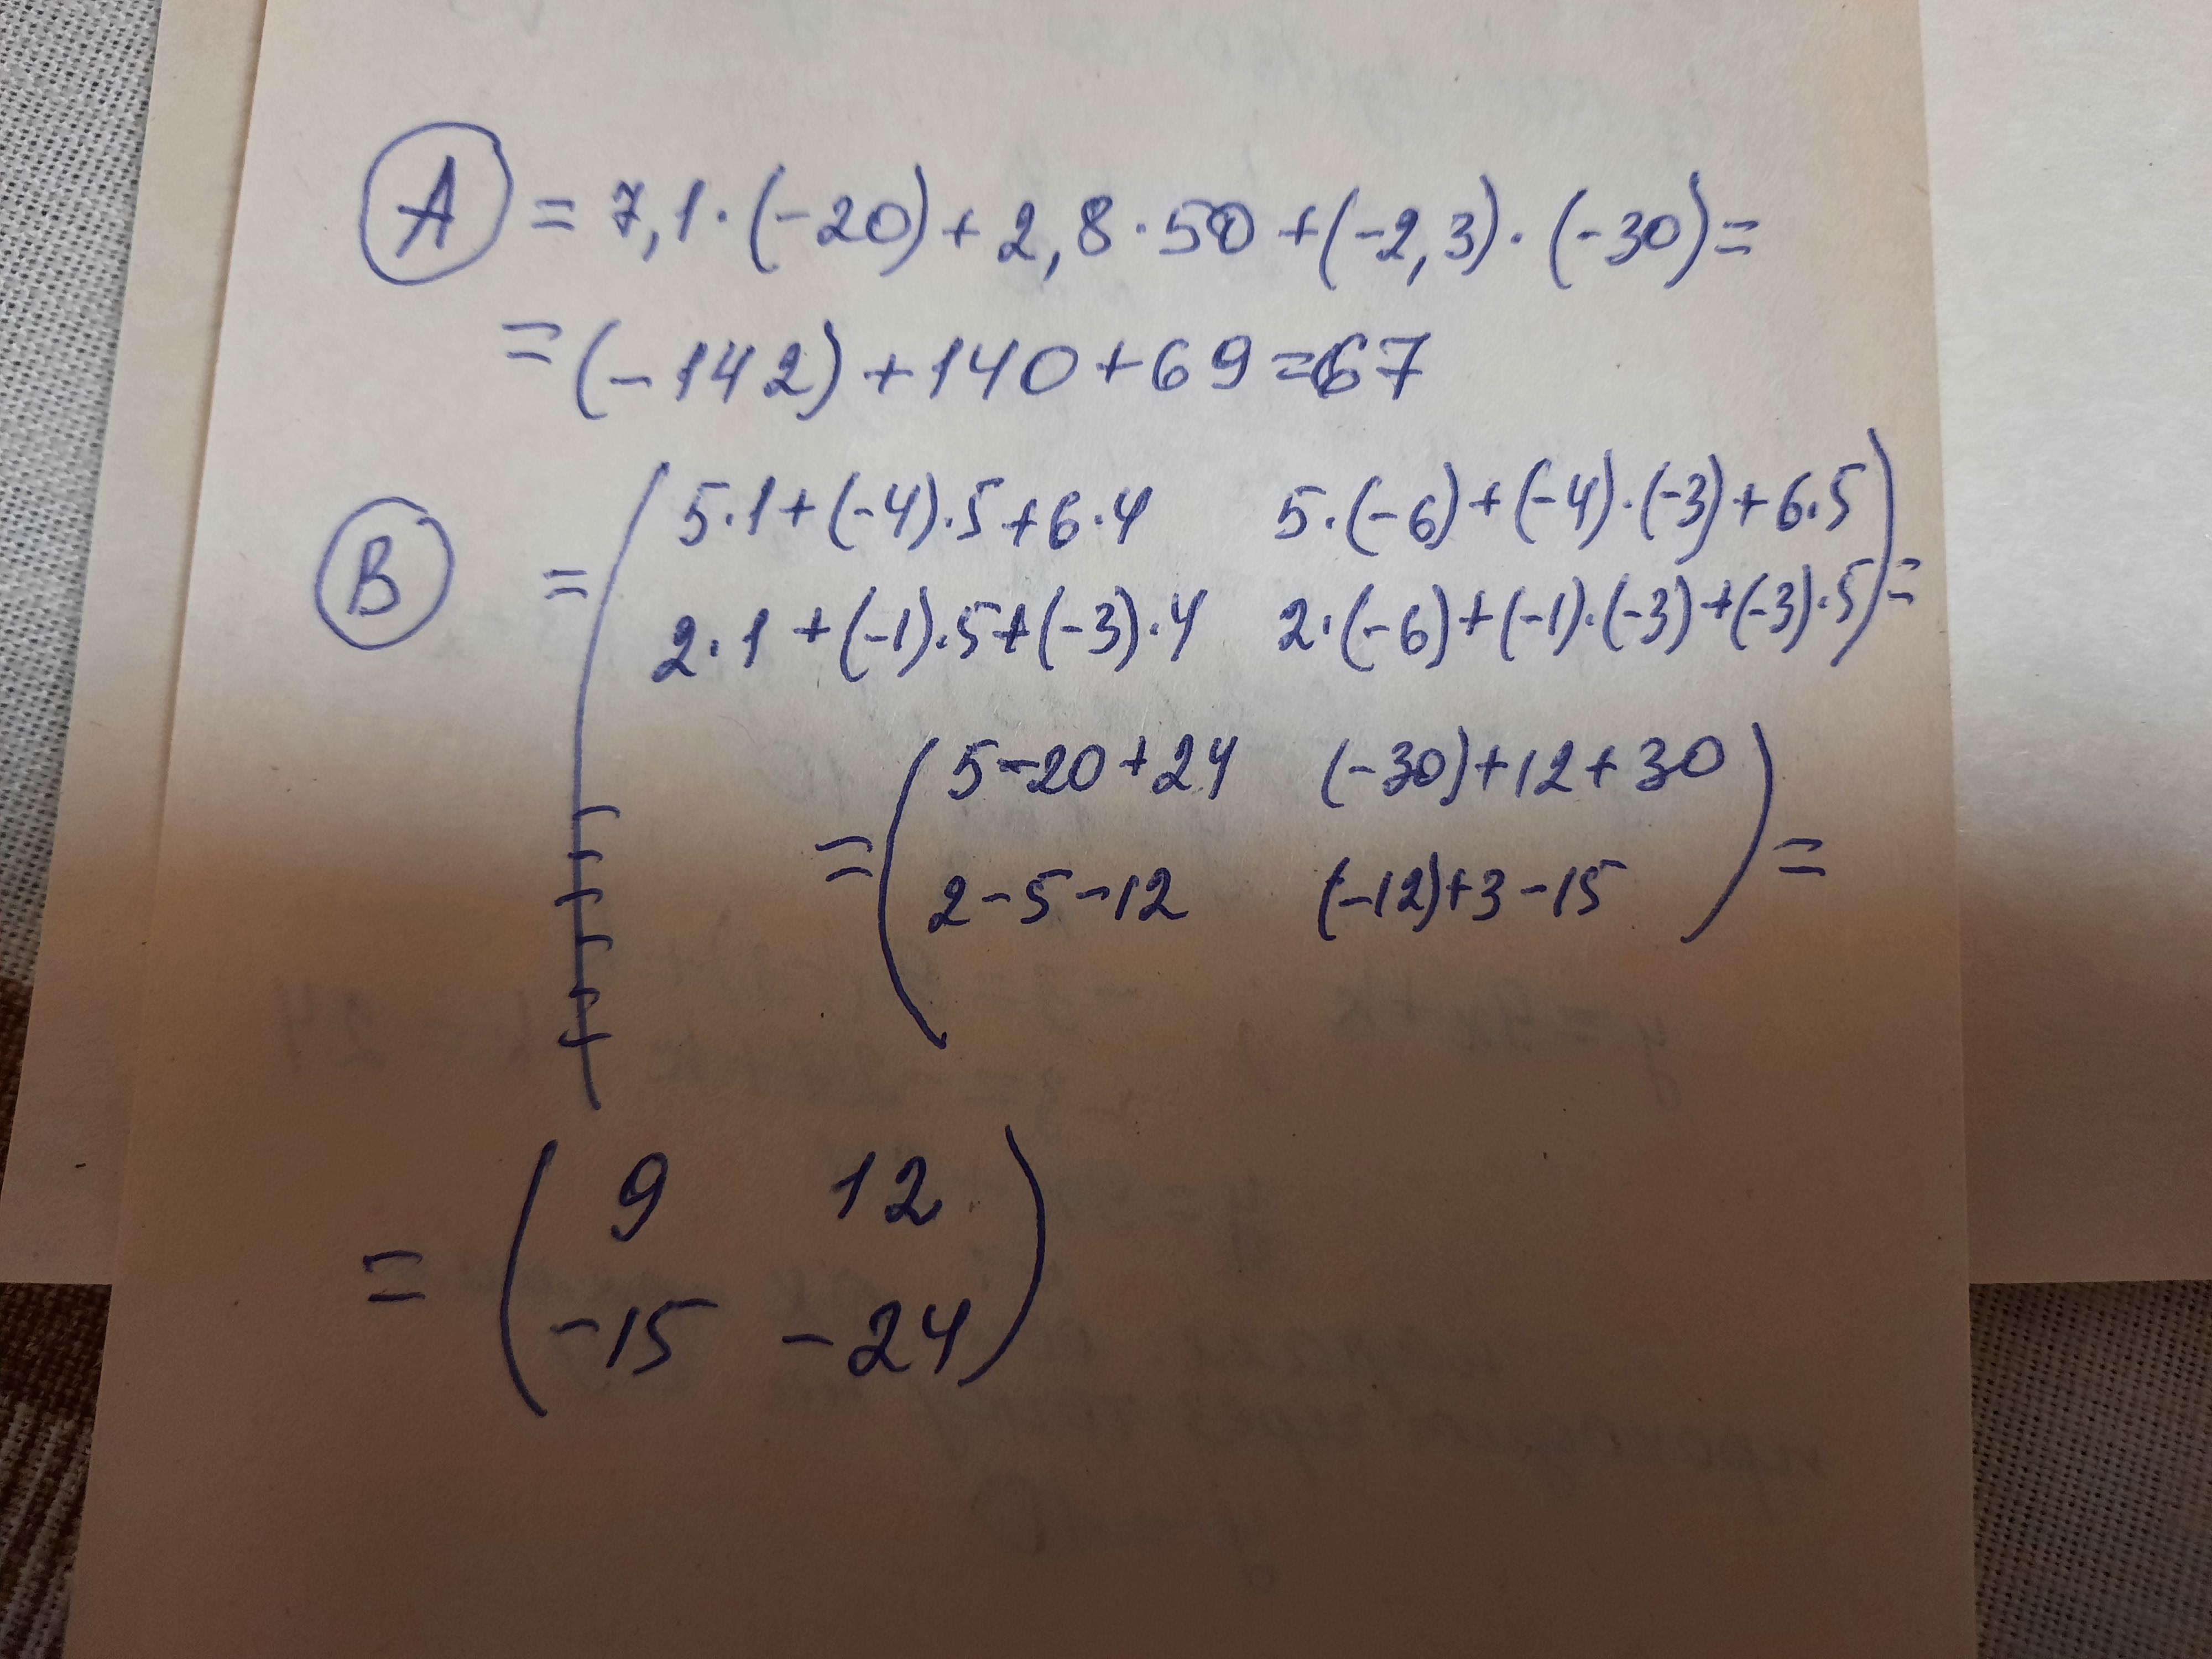 A = 7,1·(-20)+2,8·50+(-2,3)·(-30)=
=(-142)+140+69=67
B = (5·1+(-4)·5+6·4 5·(-6)+(-4)·(-3)+6·5
2·1+(-1)·5+(-3)·4 2·(-6)+(-1)·(-3)+(-3)·5)=
=(5-20+24 (-30)+12+30
2-5-12 (-12)+3-15)=
=(9 12
-15 -24)